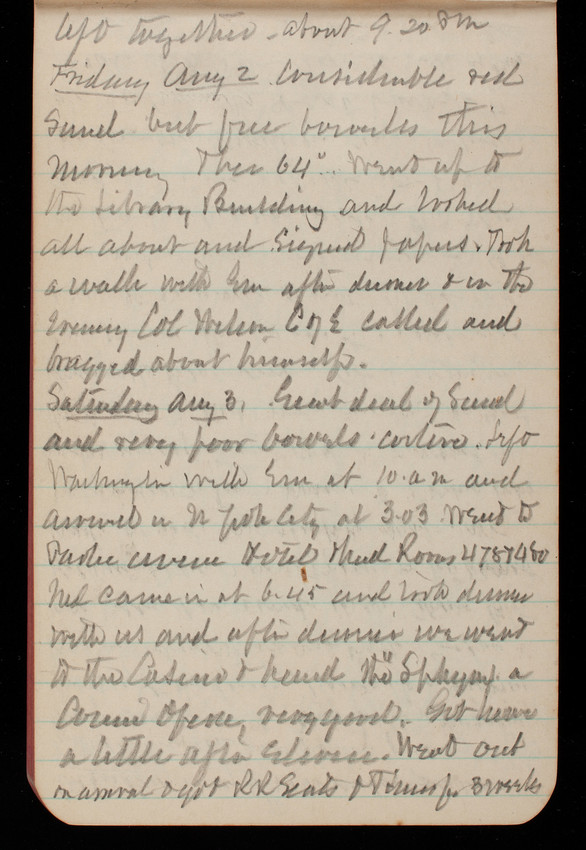 left together - about 9.20 Pm
Friday Aug 2 Considerable red
Sand but free bowels this
Morning Ther 64°. Went up to
the Library Building and looked
all about and Signed papers. Took
a walk with Em after dinner & in the
Evening Col Wilson C of E called and
bragged about himself.
Saturday Aug 3, Great deal of Sand
and very poor bowels costive. Left
Washington with Em at 10 a m and
arrived in N York City at 3.03 Went to
Park avenue Hotel & had Rooms 478 & 480
Ned came in at 6.45 and took dinner
with us and after dinner we went
to the Casino & heard the "Sphynx a
Comic Opera, very good. Got home
a little after Eleven. Went out
on arrival & got RR Seats & 3 weeks